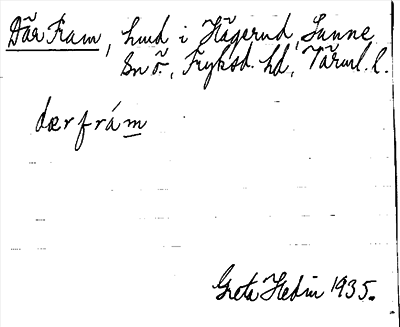 Där Fram, hmd i Hågerud, Sunne
sn ö., Fryksd. hd, Värml. l.
dærfrám
Greta Hedin 1935.